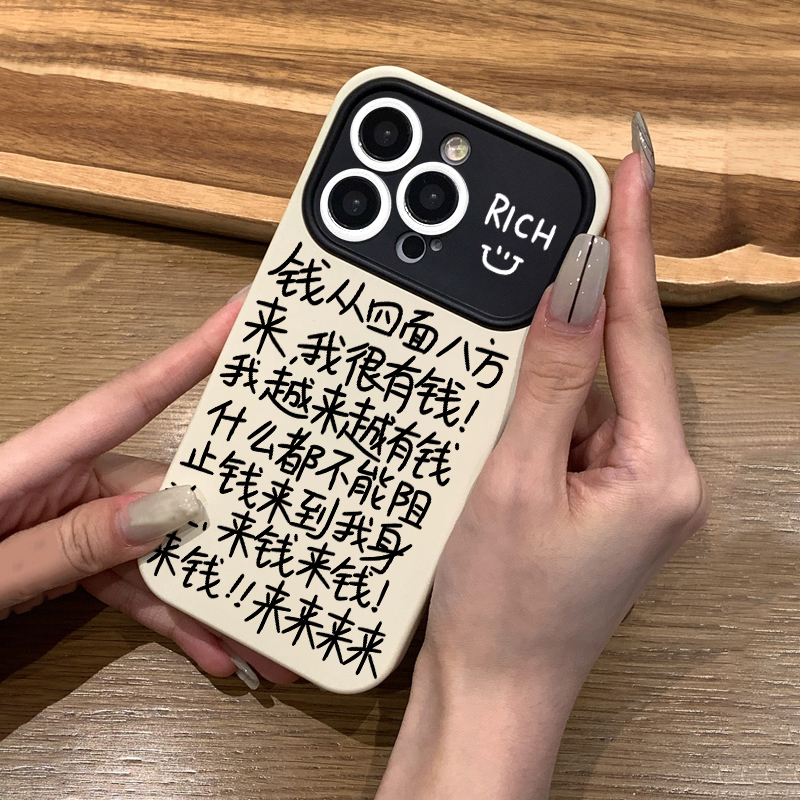 RICH
钱从四面八方
来,我很有钱!
我越来越有钱
什么都不能阻
止钱来到我身
来钱来钱!
来钱!!来来来来